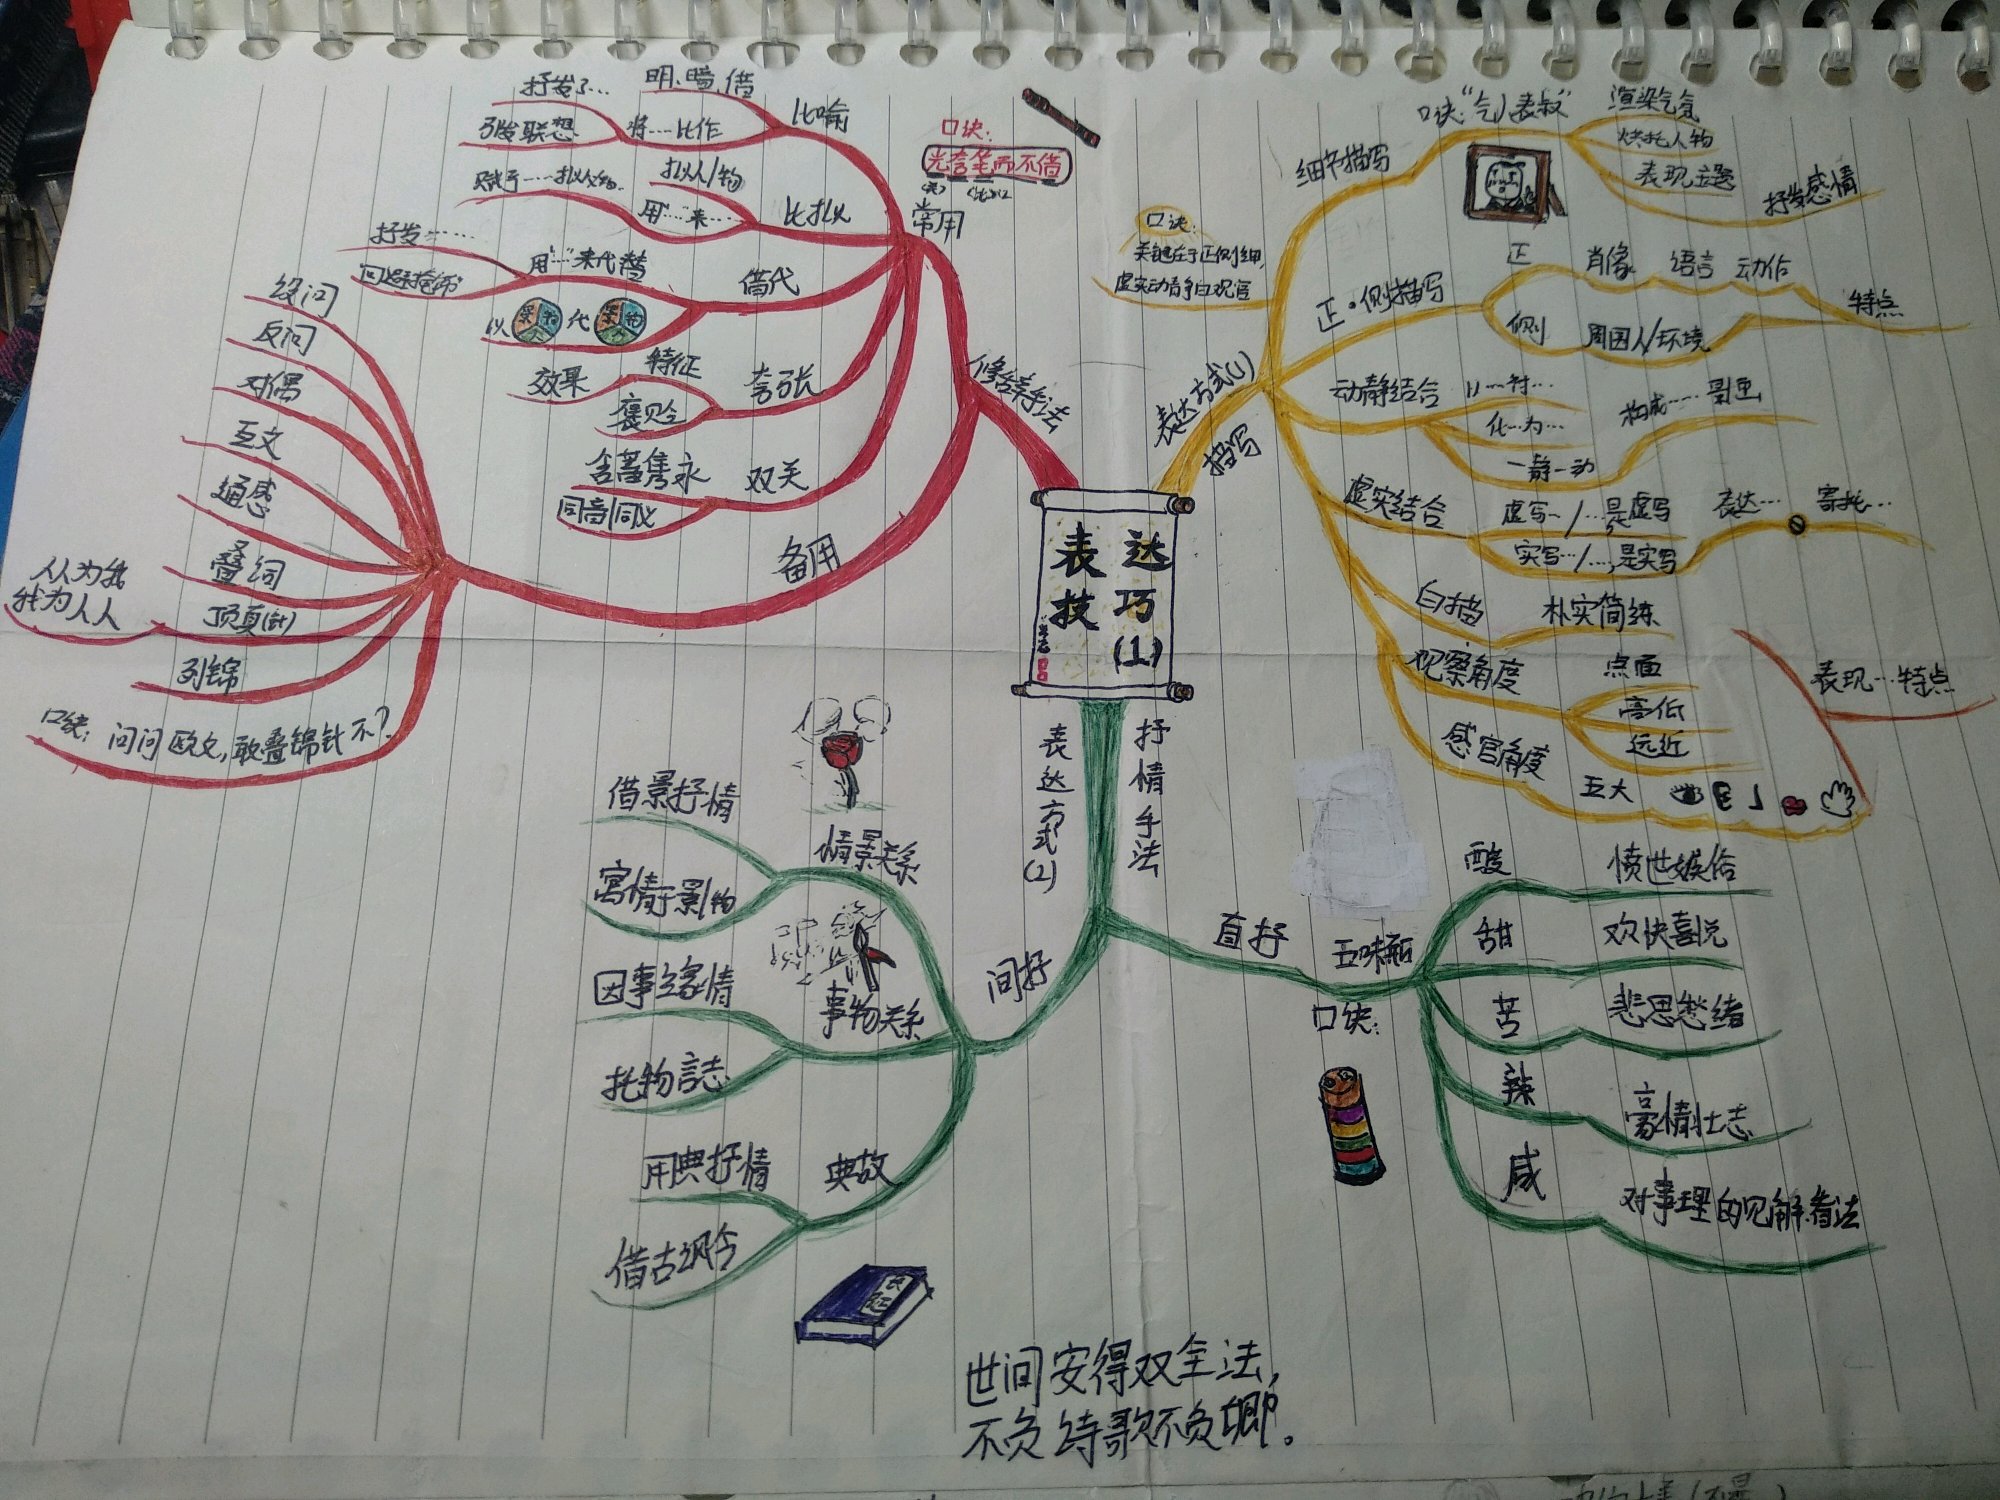 表达
技巧
(1)
修辞手法
常用
口诀:
光夸笔而不借
比喻
明、暗、借
将…比作
抒发了…
引发联想
比拟
拟人/物
赋予……拟人物
用…来…
借代
用"…"来代替
抒发……
以
代
景物
景物
夸张
特征
效果
褒贬
双关
含蓄隽永
同音/同义
备用
设问
反问
对偶
互文
通感
叠词
顶真(针)
人人为我
我为人人
列锦
口诀: 问问欧文,敢叠锦针不?
表达方式(1)
描写
口诀:
关键在于正侧细,
虚实动静白观官
细节描写
口诀:"气人表叔"
渲染气氛
烘托人物
表现主题
抒发感情
正·侧描写
正
肖像
语言
动作
侧
周围人/环境
特点
动静结合
以…衬…
化…为…
一静一动
构成……景画
虚实结合
虚写…/…是虚写
实写…/…,是实写
表达…
寄托…
白描
朴实简练
观察角度
点面
高低
远近
感官角度
五大
表现…特点
表达方式(2)
抒情手法
间抒
情景关系
借景抒情
寓情于景/物
事物关系
因事缘情
托物言志
典故
用典抒情
借古讽今
直抒
五味瓶
口诀:
酸
愤世嫉俗
甜
欢快喜悦
苦
悲思愁绪
辣
豪情壮志
咸
对事理的见解.看法
世间安得双全法,
不负诗歌不负卿。